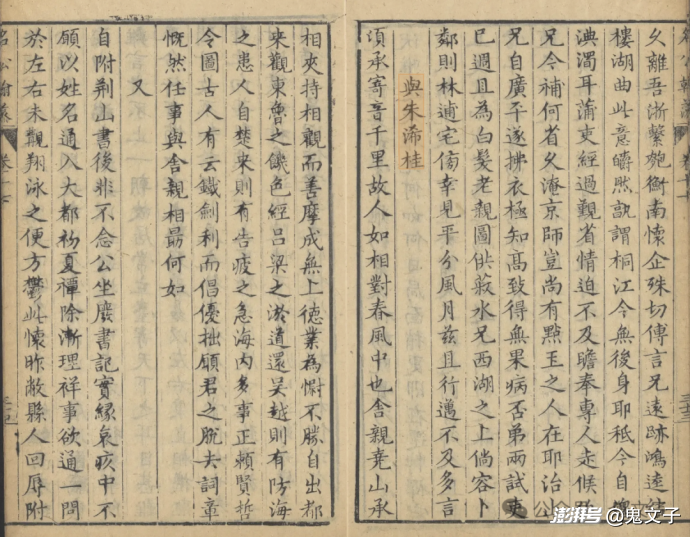 久離吾浙繫匏衡南懷企殊切傳言兄遠跡鴻逵
樓湖曲此意皭然孰謂桐江今無後身耶秪今自
濁耳蒲吏經過覲省情迫不及瞻奉專人走候
兄令補何省久淹京師豈尚有點玉之人在耶治
兄自廣平遂拂衣極知髙致得無果病否弟兩試吏
已週且為白髮老親圖供菽水兄西湖之上倘容卜
鄰則林逋宅倘幸見平分風月兹且行邁不及多言
與朱浠桂
項承寄音千里故人如相對春風中也舍親竟山承
相夾持相觀而善摩成無上德業為慰不勝自出都
来觀東魯之饑色經呂梁之淤道還吳越則有防海
之患人自楚来則有告疲之急海内多事正賴賢哲
令圖古人有云鐵劍利而倡優拙願君之脫去詞章
慨然任事與舍親相朂何如
又
自附荆山書後非不念公坐廢書記實緣哀疚中不
願以姓名通入大都初夏禫除漸理祥事欲通一問
於左右未觀翔泳之便方鬱此懷昨敝縣人回辱附
名公翰藻
卷十七
澎湃号@鬼文子